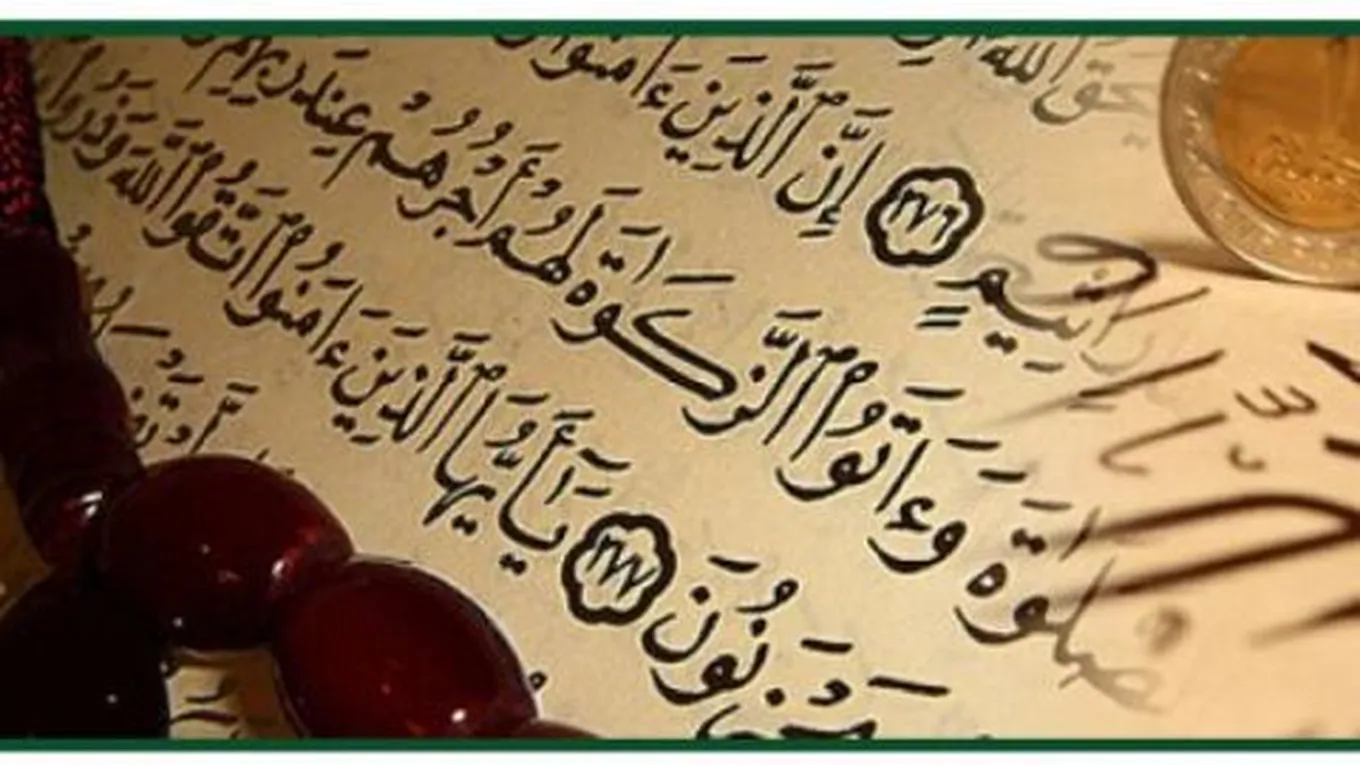 يمحق ٱللَّه
أَثِيمٍ ٢٧٦ إِنَّ ٱلَّذِينَ ءَامَنُوا
ٱلصَّلَوٰةَ وَءَاتَوُا۟ ٱلزَّكَوٰةَ لَهُمْ أَجْرُهُمْ عِندَ رَبِّهِمْ
يَحْزَنُونَ ٢٧٧ يَٰٓأَيُّهَا ٱلَّذِينَ ءَامَنُوا۟ ٱتَّقُوا۟ ٱللَّهَ وَذَرُوا۟